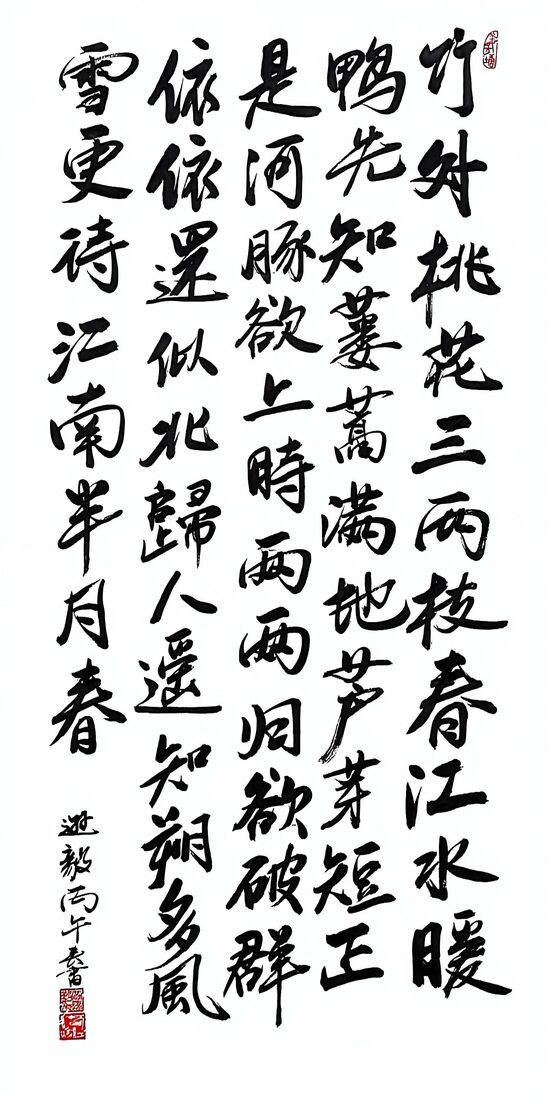 竹外桃花三两枝春江水暖
鸭先知蒌蒿满地芦芽短正
是河豚欲上時两两归欲破群
依依還似北歸人遥知朔多風
雪更待江南半月春
毅丙午春書